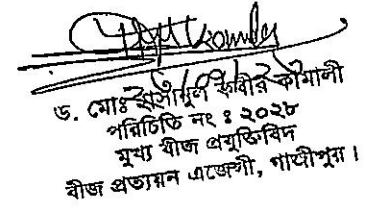 ড. মোঃ হাসানুল কবীর কামালী
পরিচিতি নং ঃ ২০২৮
মুখ্য বীজ প্রযুক্তিবিদ
বীজ প্রত্যয়ন এজেন্সী, গাজীপুর।